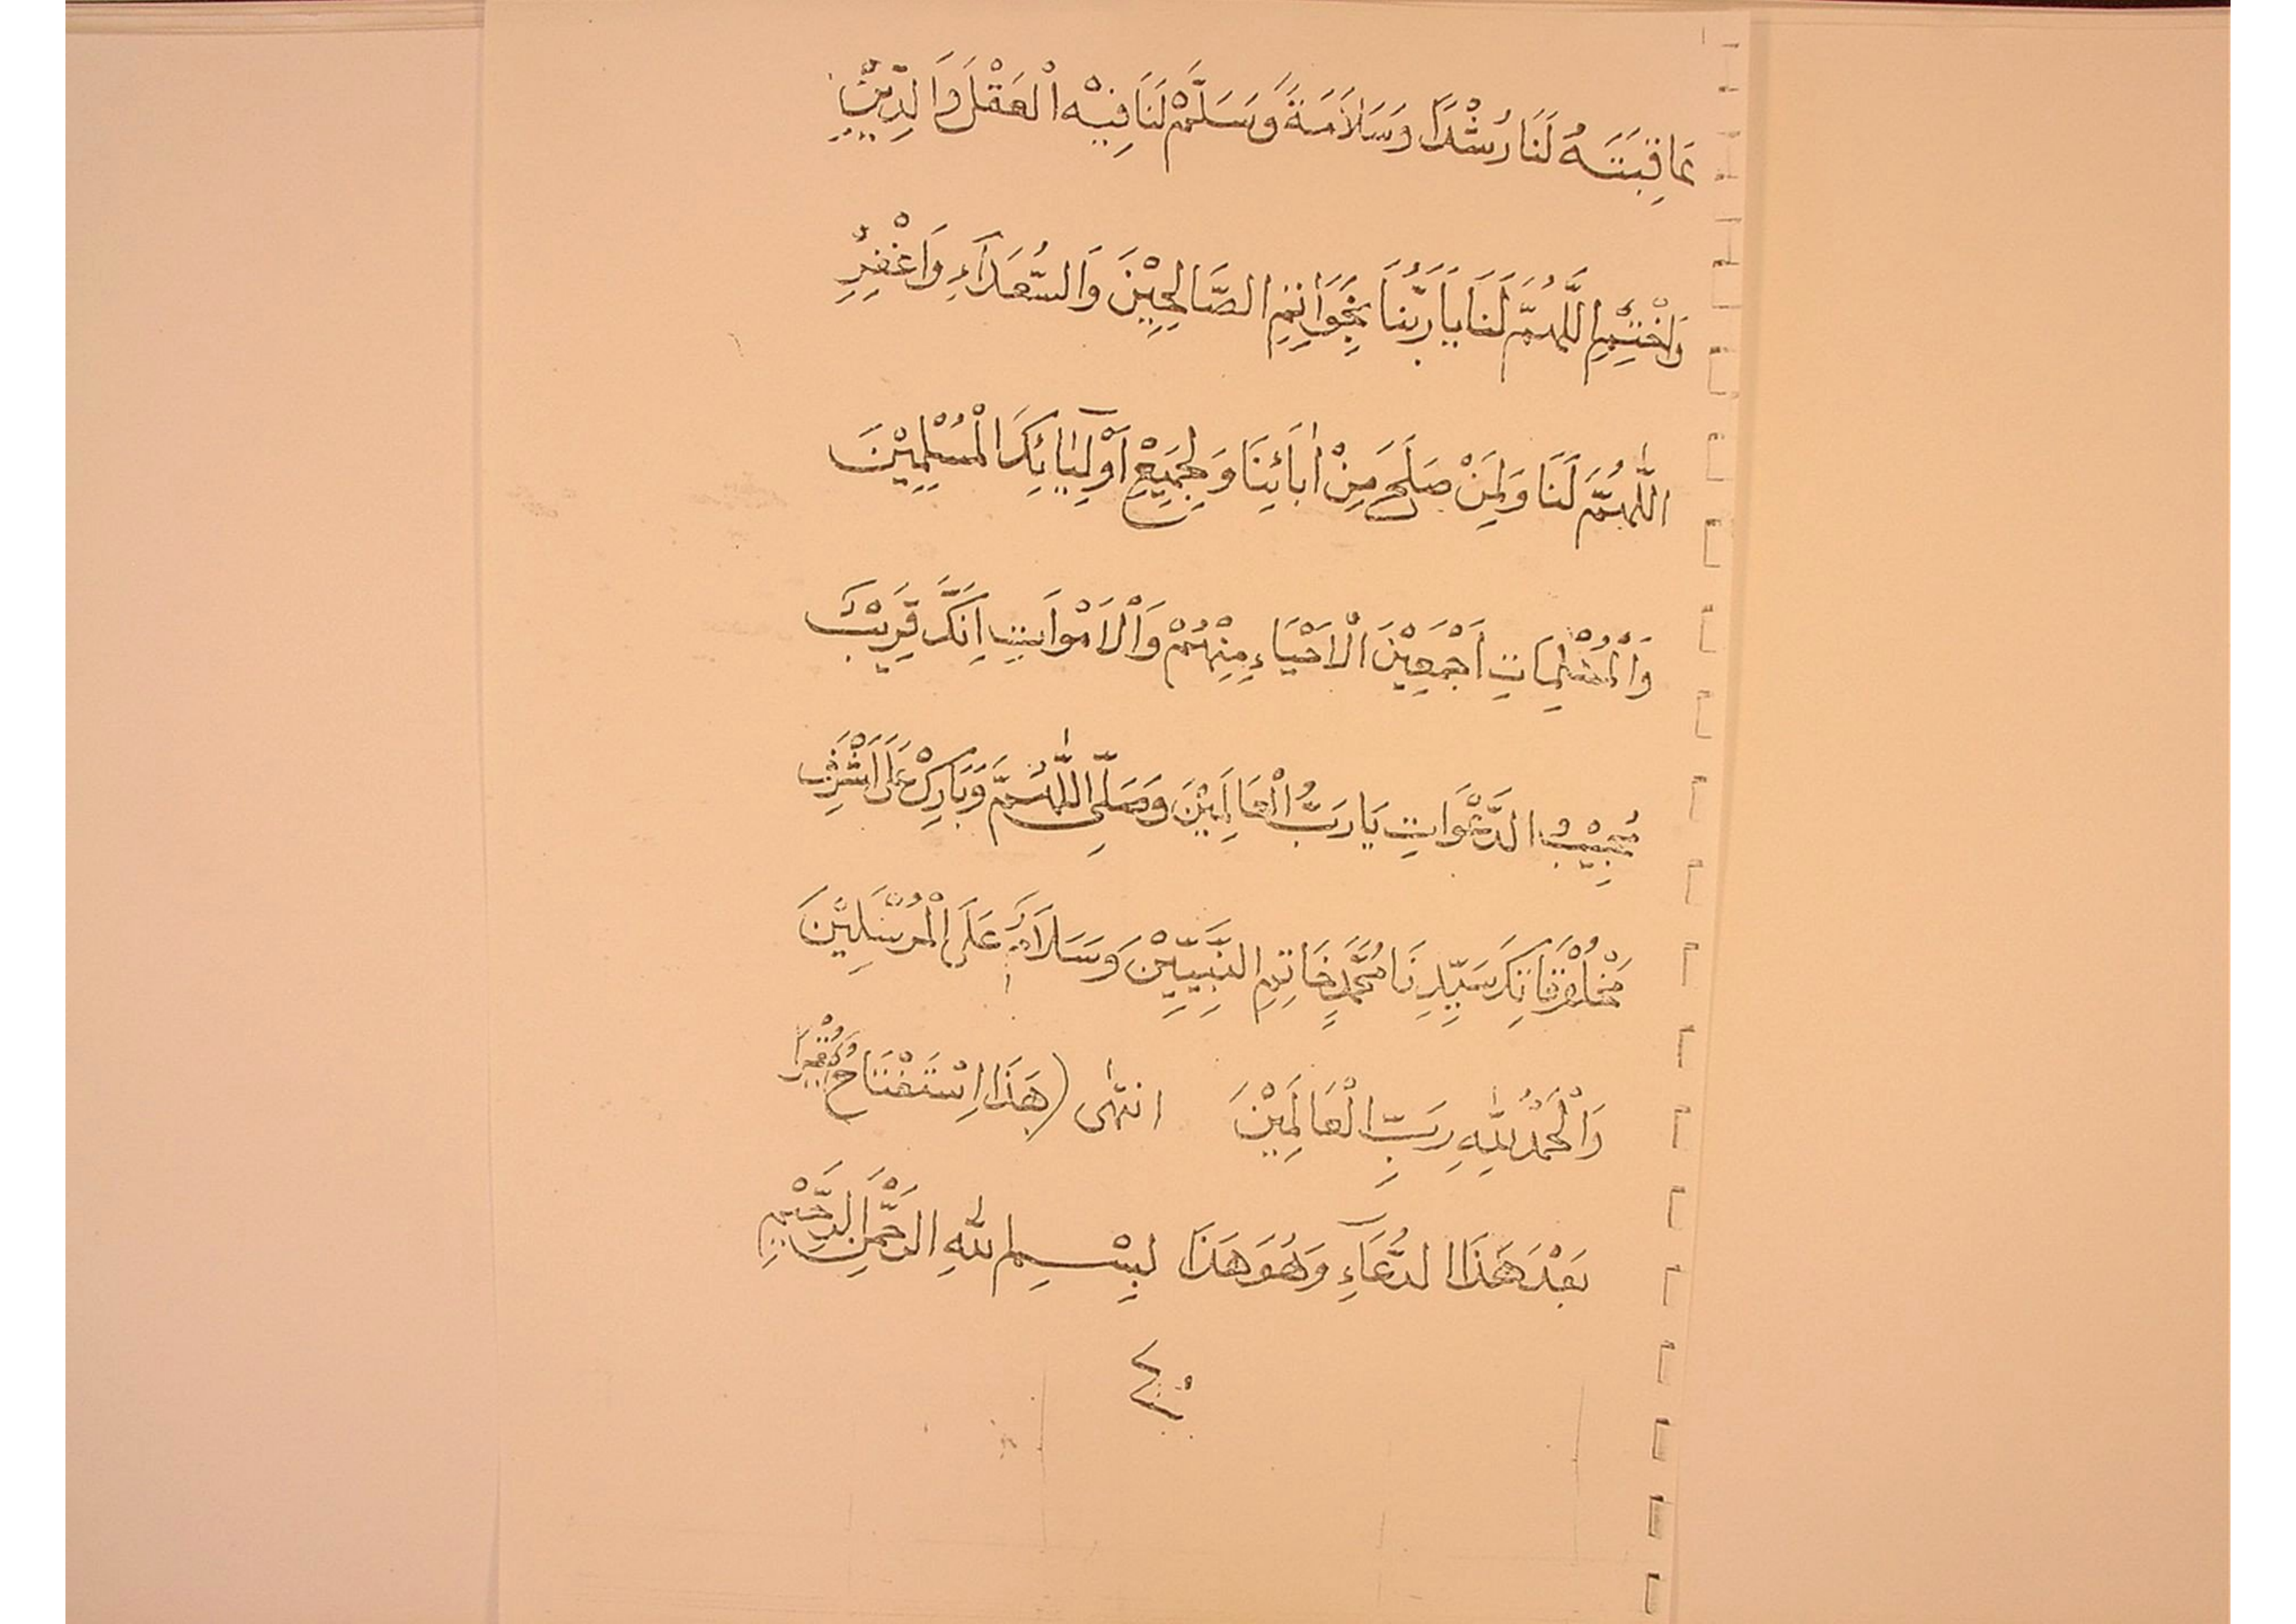 عَاقِبَتَهُ لَنَا رُشْدًا وَسَلَامَةً وَسَلِّمْ لَنَا فِيْهِ الْعَقْلَ وَالدِّيْنِ
وَاخْتِمِ اللَّهُمَّ لَنَا يَا رَبَّنَا بِخَوَاتِمِ الصَّالِحِيْنَ وَالسُّعَدَاءِ وَاغْفِرِ
اللَّهُمَّ لَنَا وَلِمَنْ صَلَحَ مِنْ اٰبَائِنَا وَلِجَمِيْعِ اَوْلِيَائِكَ الْمُسْلِمِيْنَ
وَالْمُسْلِمَاتِ اَجْمَعِيْنَ الْاَحْيَاءِ مِنْهُمْ وَالْاَمْوَاتِ اِنَّكَ قَرِيْبٌ
مُجِيْبُ الدَّعَوَاتِ يَا رَبَّ الْعَالَمِيْنَ وَصَلِّى اللّٰهُمَّ وَبَارِكْ عَلَى اَشْرَفِ
مَخْلُوْقَاتِكَ سَيِّدِنَا مُحَمَّدٍ خَاتِمِ النَّبِيِّيْنَ وَسَلَامٌ عَلَى الْمُرْسَلِيْنَ
وَالْحَمْدُ لِلّٰهِ رَبِّ الْعَالَمِيْنَ انتهٰى (هَذَا اِسْتَفْتَاحُ
بَعْدَ هَذَا الدُّعَآءِ وَهُوَ هَذَا بِسْمِ اللّٰهِ الرَّحْمٰنِ الرَّحِيْمِ